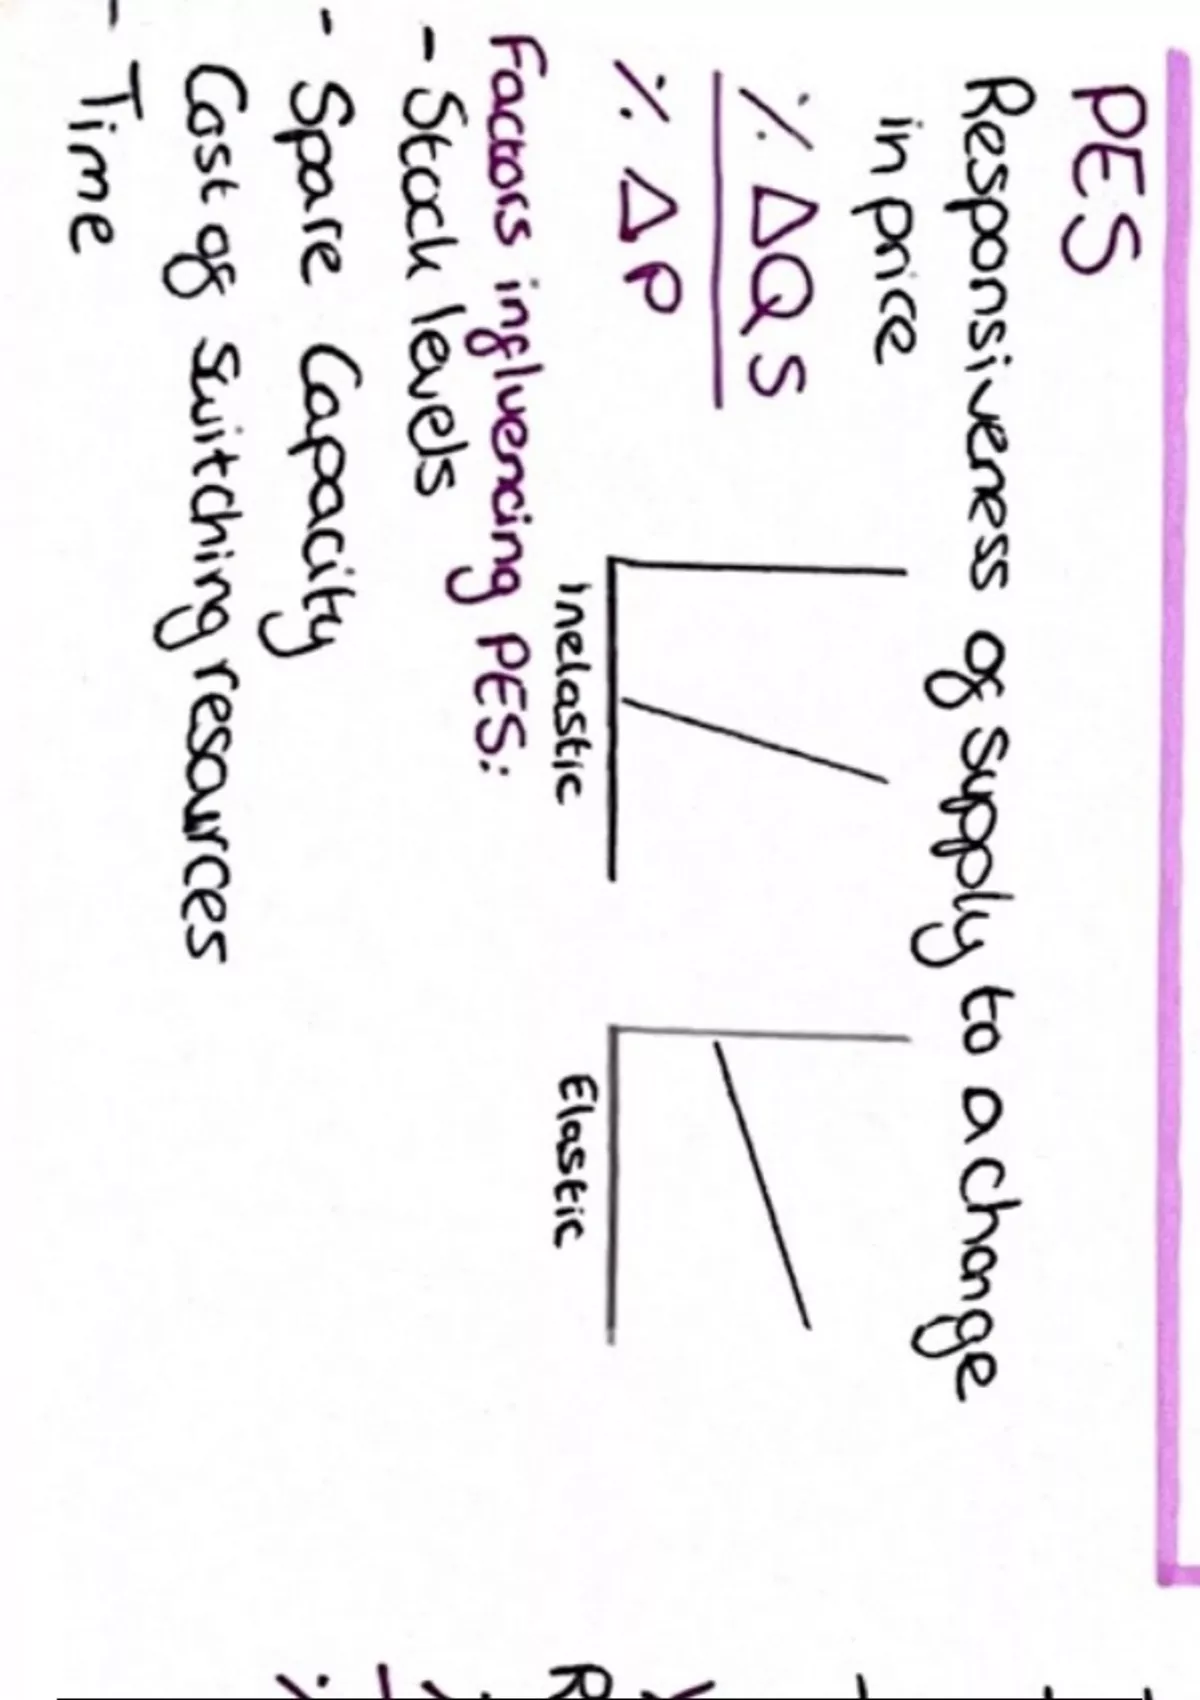 PES
Responsiveness of supply to a change
in price
% ΔQS
% ΔP
Inelastic
Elastic
Factors influencing PES:
- Stock levels
- Spare Capacity
Cost of switching resources
- Time
R